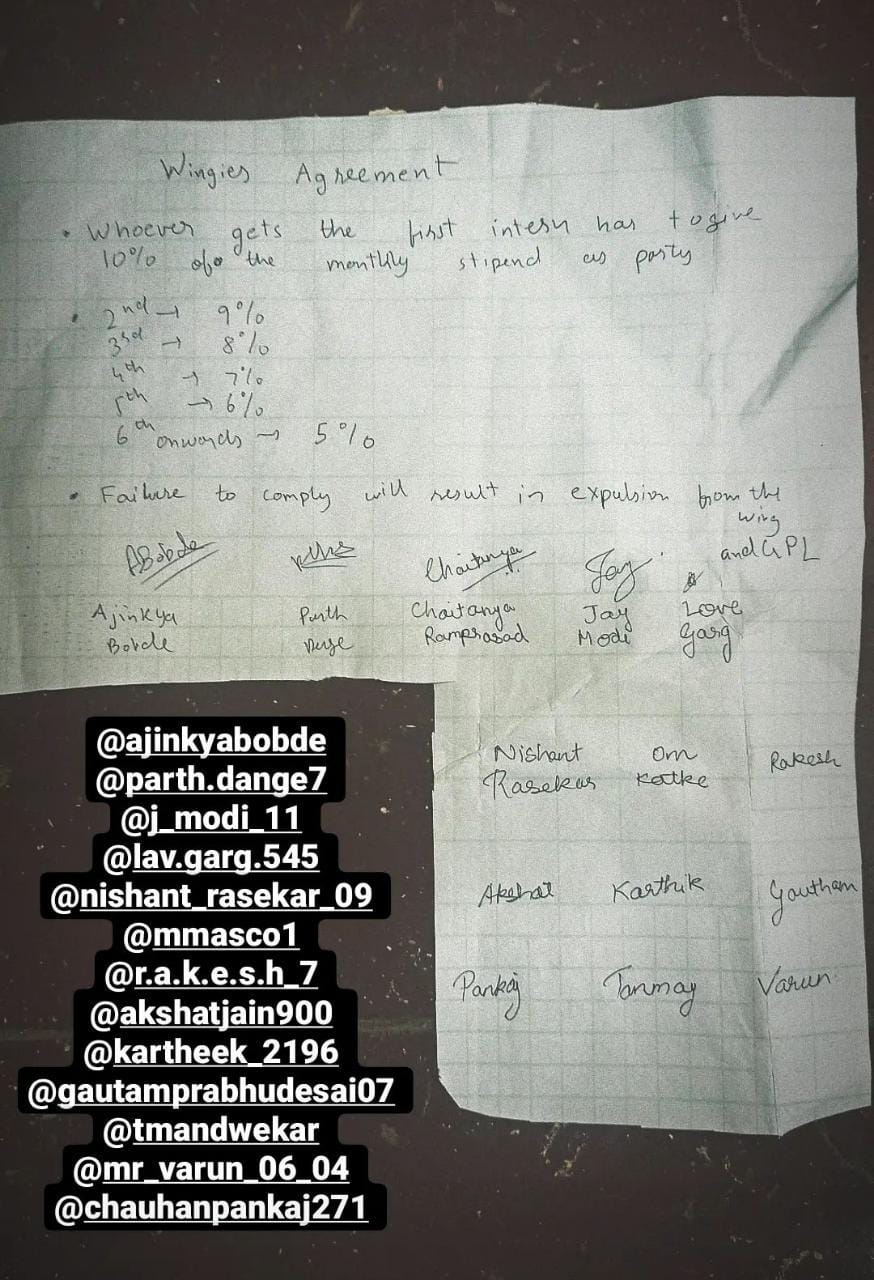 Wingies Agreement
• Whoever gets the first intern has to give
10% of the monthly stipend as party
• 2nd → 9%
3rd → 8%
4th → 7%
5th → 6%
6th onwards → 5%
• Failure to comply will result in expulsion from the
wing
and GPL
ABobde Chaitanya Jay
Ajinkya Parth Chaitanya Jay Love
Bobde Ramprasad Modi Garg
Nishant Om Rakesh
Rasekar Kotke
Akshat Karthik Goutham
Pankaj Tanmay Varun
@ajinkyabobde
@parth.dange7
@j_modi_11
@lav.garg.545
@nishant_rasekar_09
@mmasco1
@r.a.k.e.s.h_7
@akshatjain900
@kartheek_2196
@gautamprabhudesai07
@tmandwekar
@mr_varun_06_04
@chauhanpankaj271